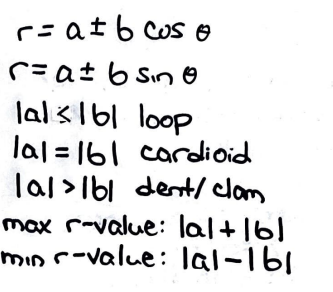 r = a ± b cos θ
r = a ± b sin θ
|a| ≤ |b| loop
|a| = |b| cardioid
|a| > |b| dent/clam
max r-value: |a| + |b|
min r-value: |a| - |b|